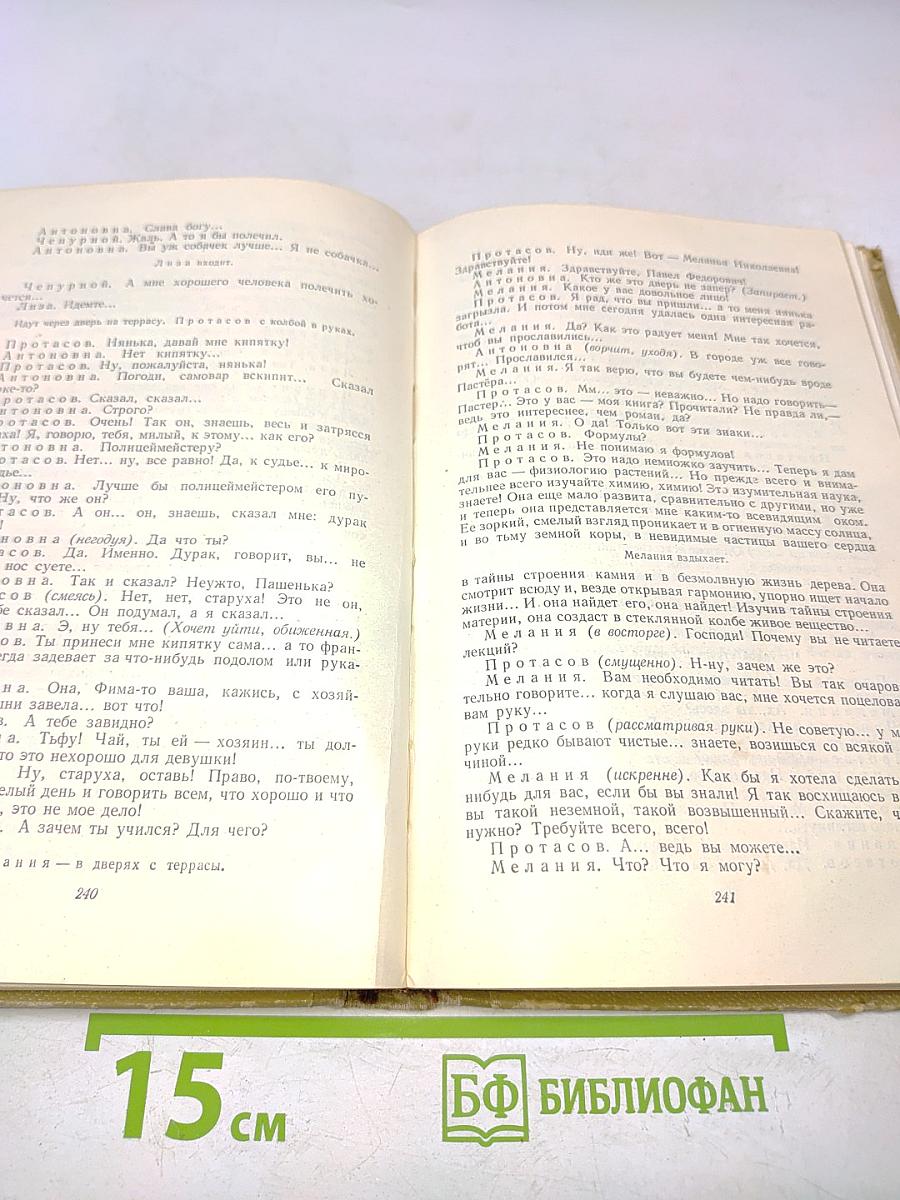 Антоновна. Слава богу...
Чепурной. Жаль. А то я бы полечил.
Антоновна. Вы уж собачек лучше... Я не собачка...
Лиза входит.
Чепурной. А мне хорошего человека полечить хо-
чется...
Лиза. Идемте...
Идут через дверь на террасу. Протасов с колбой в руках.
Протасов. Нянька, давай мне кипятку!
Антоновна. Нет кипятку...
Протасов. Ну, пожалуйста, нянька!
Антоновна. Погоди, самовар вскипит... Сказал
ке-то?
ротасов. Сказал, сказал...
нтоновна. Строго?
ротасов. Очень! Так он, знаешь, весь и затрясся
аха! Я, говорю, тебя, милый, к этому... как его?
тоновна. Полицеймейстеру?
отасов. Нет... ну, все равно! Да, к судье... к миро-
дье...
оновна. Лучше бы полицеймейстером его пу-
Ну, что же он?
тасов. А он... он, знаешь, сказал мне: дурак
!
новна (негодуя). Да что ты?
асов. Да. Именно. Дурак, говорит, вы... не
нос суете...
овна. Так и сказал? Неужто, Пашенька?
сов (смеясь). Нет, нет, старуха! Это не он,
бе сказал... Он подумал, а я сказал...
вна. Э, ну тебя... (Хочет уйти, обиженная.)
ов. Ты принеси мне кипятку сама... а то фран-
егда задевает за что-нибудь подолом или рука-
на. Она, Фима-то ваша, кажись, с хозяй-
ыни завела... вот что!
в. А тебе завидно?
на. Тьфу! Чай, ты ей — хозяин... ты дол-
то это нехорошо для девушки!
Ну, старуха, оставь! Право, по-твоему,
елый день и говорить всем, что хорошо и что
, это не мое дело!
. А зачем ты учился? Для чего?
ания — в дверях с террасы.
240
Протасов. Ну, иди же! Вот — Меланья Николаевна!
Здравствуйте!
Мелания. Здравствуйте, Павел Федорович!
Антоновна. Кто же это дверь не запер? (Запирает.)
Мелания. Какое у вас довольное лицо!
Протасов. Я рад, что вы пришли... а то меня нянька
загрызла. И потом мне сегодня удалась одна интересная ра-
бота...
Мелания. Да? Как это радует меня! Мне так хочется,
чтоб вы прославились...
Антоновна (ворчит, уходя). В городе уж все гово-
рят... Прославился...
Мелания. Я так верю, что вы будете чем-нибудь вроде
Пастёра...
Протасов. Мм... это — неважно... Но надо говорить—
Пастер... Это у вас — моя книга? Прочитали? Не правда ли,—
ведь это интереснее, чем роман, да?
Мелания. О да! Только вот эти знаки...
Протасов. Формулы?
Мелания. Не понимаю я формулов!
Протасов. Это надо немножко заучить... Теперь я дам
для вас — физиологию растений... Но прежде всего и внима-
тельнее всего изучайте химию, химию! Это изумительная наука,
знаете! Она еще мало развита, сравнительно с другими, но уже
и теперь она представляется мне каким-то всевидящим оком.
Ее зоркий, смелый взгляд проникает и в огненную массу солнца,
и во тьму земной коры, в невидимые частицы вашего сердца
Мелания вздыхает.
в тайны строения камня и в безмолвную жизнь дерева. Она
смотрит всюду и, везде открывая гармонию, упорно ищет начало
жизни... И она найдет его, она найдет! Изучив тайны строения
материи, она создаст в стеклянной колбе живое вещество...
Мелания (в восторге). Господи! Почему вы не читаете
лекций?
Протасов (смущенно). Н-ну, зачем же это?
Мелания. Вам необходимо читать! Вы так очаров
тельно говорите... когда я слушаю вас, мне хочется поцелова
вам руку...
Протасов (рассматривая руки). Не советую... у м
руки редко бывают чистые... знаете, возишься со всякой
чиной...
Мелания (искренне). Как бы я хотела сделать
нибудь для вас, если бы вы знали! Я так восхищаюсь в
вы такой неземной, такой возвышенный... Скажите, ч
нужно? Требуйте всего, всего!
Протасов. А... ведь вы можете...
Мелания. Что? Что я могу?
241
15 см
БФ БИБЛИОФАН